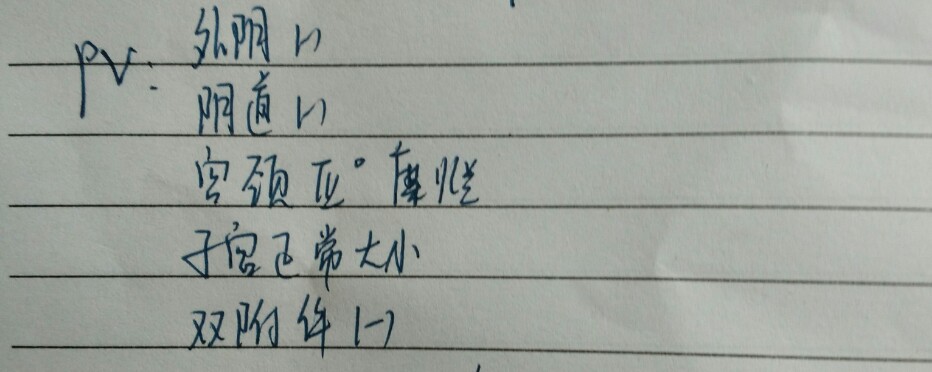 PV: 外阴(-)
阴道(-)
宫颈Ⅱ°糜烂
子宫正常大小
双附件(-)